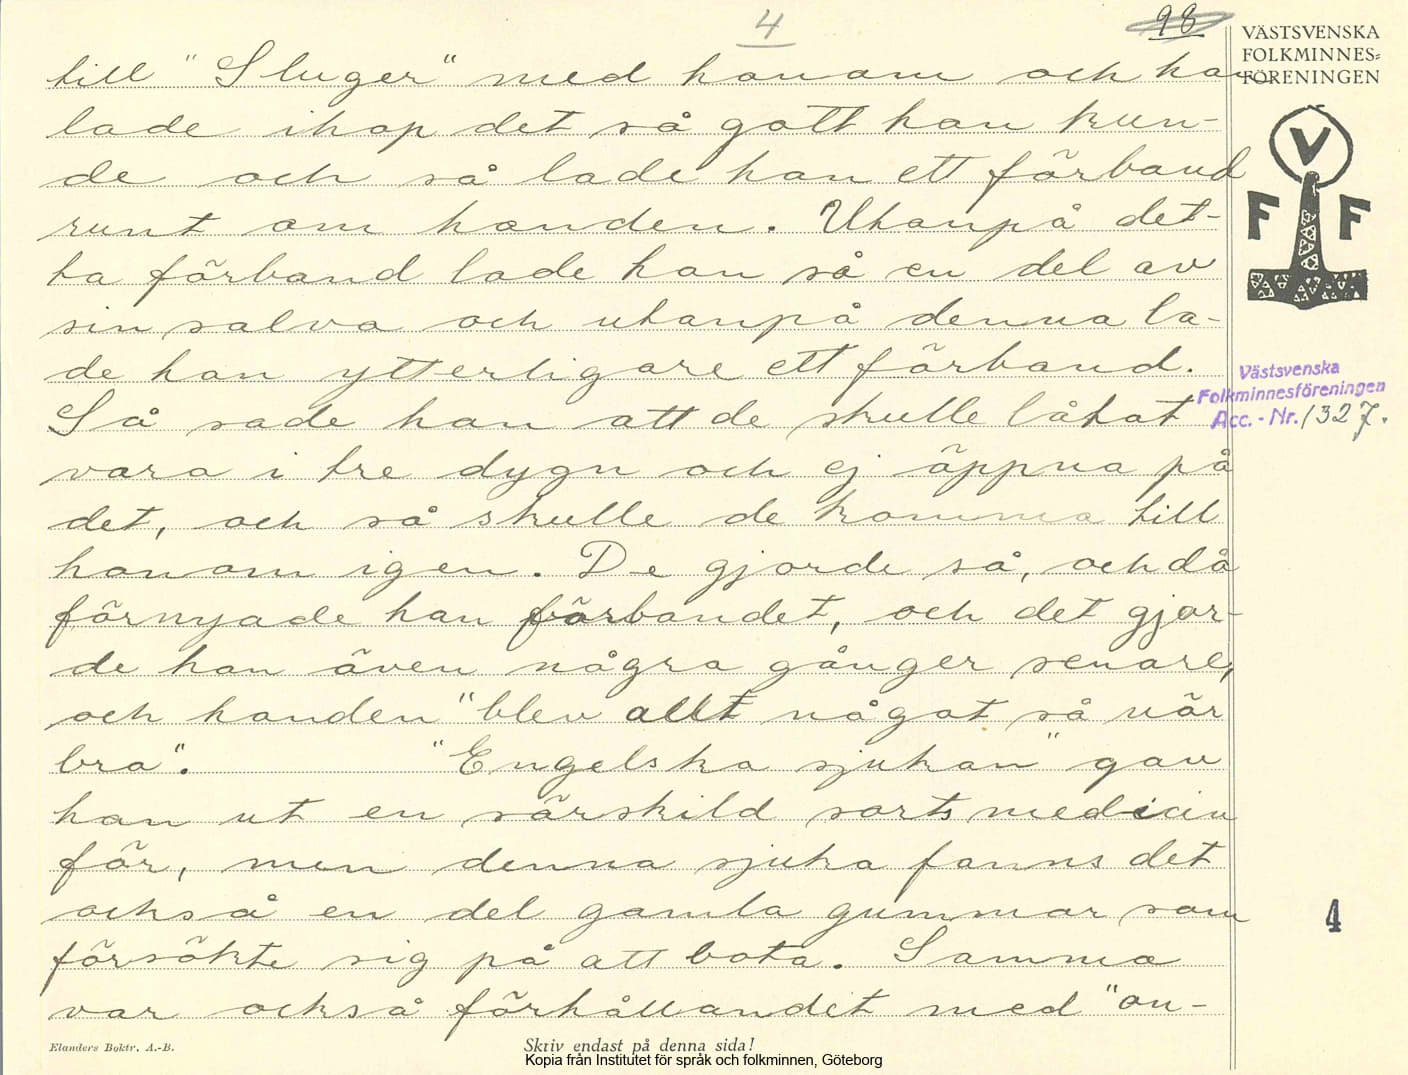 4
98
VÄSTSVENSKA
FOLKMINNES-
FÖRENINGEN
V
F F
till "Sluger" med honom och han
lade ihop det så gott han kun-
de och så lade han ett förband
runt om handen. Utanpå det-
ta förband lade han så en del av
sin salva och utanpå denna la-
de han ytterligare ett förband.
Så sade han att de skulle låtat
vara i tre dygn och ej öppna på
det, och så skulle de komma till
honom igen. De gjorde så, och då
förnyade han förbandet, och det gjor-
de han även några gånger senare,
och handen "blev allt något så när
bra". "Engelska sjukan" gav
han ut en särskild sorts medicin
för, men denna sjuka fanns det
också en del gamla gummor som
försökte sig på att bota. Samma
var också förhållandet med "on-
Västsvenska
Folkminnesföreningen
Acc.-Nr. 1327.
4
Elanders Boktr. A.-B.
Skriv endast på denna sida!
Kopia från Institutet för språk och folkminnen, Göteborg